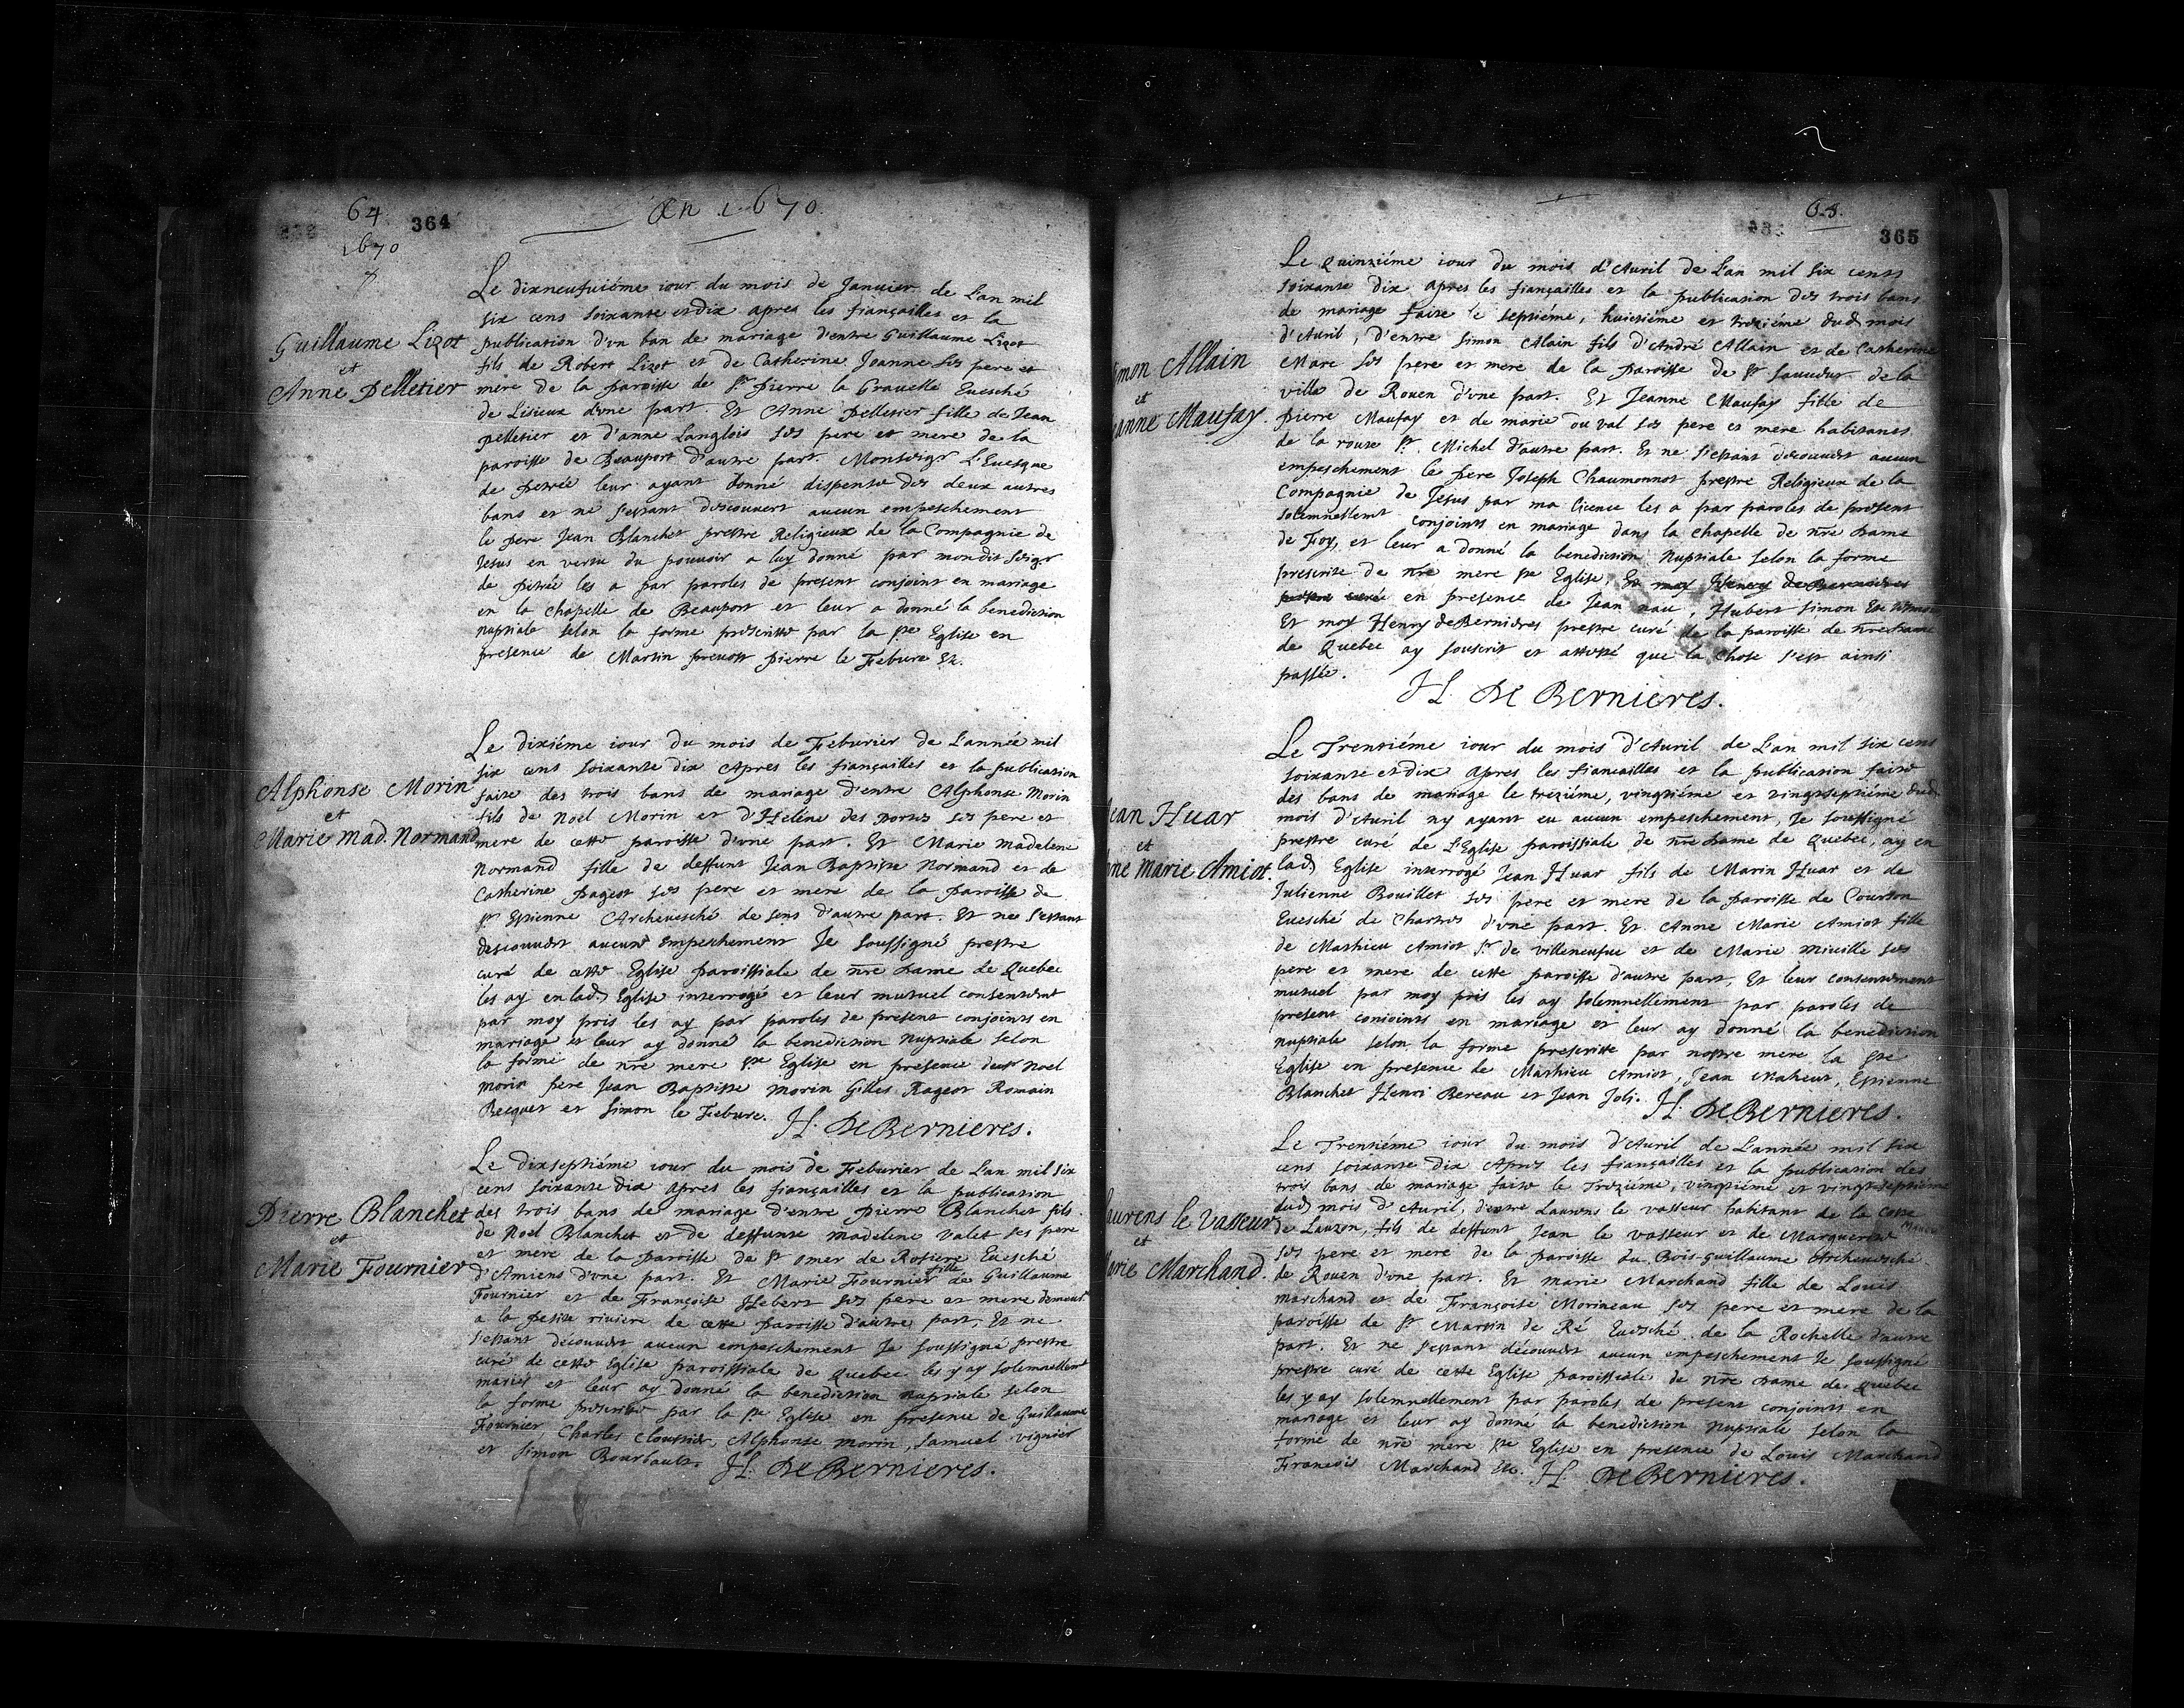 64
364
An 1670.
1670
Le dixneufuiéme iour du mois de Januier de L'an mil
six cens soixante et dix apres les fiançailles et la
publication d'vn ban de mariage d'entre Guillaume Lizot
Guillaume Lizot
et
Anne Pelletier
fils de Robert Lizot et de Catherine Joanne ses pere et
mere de la paroisse de St Pierre la Grauelle Euesché
de Lisieux d'vne part. Et Anne Pelletier fille de Jean
pelletier et d'anne Langlois ses pere et mere de la
paroisse de Beauport d'autre part. Monseigr L'Euesque
de petrée leur ayant donné dispense des deux autres
bans et ne s'estant descouuert aucun empeschement
le pere Jean Blanchet prestre Religieux de la Compagnie de
Jesus en vertu du pouuoir a luy donné par mondit seigr
de petrée les a par paroles de present conjoint en mariage
en la chapelle de Beauport et leur a donné la benediction
nuptiale selon la forme prescritte par la ste Eglise en
presence de Martin preuost pierre le Febure Et.
Le dixiéme iour du mois de Feburier de L'année mil
six cens soixante dix Apres les fiançailles et la publication
Alphonse Morin
et
Marie Mad. Normand
faite des trois bans de mariage d'entre Alphonse Morin
fils de Noel Morin et d'Heléne des portes ses pere et
mere de cette paroisse d'vne part. Et Marie madelene
Normand fille de deffunt Jean Baptiste Normand et de
Catherine pageot ses pere et mere de la paroisse de
St Estienne Archeuesché de sens d'autre part. Et ne s'estant
descouuert aucun Empeschement Je soussigné prestre
curé de cette Eglise paroissiale de nre Dame de Quebec
les ay en lad. Eglise interrogé et leur mutuel consentemt
par moy pris les ay par paroles de present conjoints en
mariage et leur ay donné la benediction nuptiale selon
la forme de nre mere ste Eglise en presence de Noel
morin pere Jean Baptiste Morin Gilles Rageot Romain
Becquet et simon le Febure. H. De Bernieres.
Le dixseptiéme iour du mois de Feburier de L'an mil six
cens soixante dix apres les fiançailles et la publication
Pierre Blanchet
et
Marie Fournier
des trois bans de mariage d'entre Pierre Blanchet fils
de Noel Blanchet et de deffunte madelene valet ses pere
et mere de la paroisse de St omer de Rosiere Euesché
d'Amiens d'vne part. Et Marie Fournier fille de Guillaume
Fournier et de Françoise Hebert ses pere et mere demeut
a la petite riuiere de cette paroisse d'autre part, Et ne
s'estant découuert aucun empeschement Je soussigné prestre
curé de cette Eglise paroissiale de Quebec les y ay solemnellemt
mariés et leur ay donné la benediction nuptiale selon
la forme prescritte par la ste Eglise en presence de Guillaume
Fournier, Charles Cloustier, Alphonse morin, Samuel vignier
et simon Bourbault. H. De Bernieres.
65.
365
Le quinziéme iour du mois d'Auril de L'an mil six cens
soixante dix apres les fiançailles et la publication des trois bans
de mariage faite le septieme, huictiéme et treziéme dud. mois
d'Auril, d'entre Simon Alain fils d'André Allain et de Catherine
imon Allain
et
eanne Maufay.
Mare ses pere et mere de la paroisse de St sauueur de la
ville de Rouen d'vne part. Et Jeanne Maufay fille de
pierre Maufay et de marie du val ses pere et mere habitans
de la route St. Michel d'autre part. Et ne s'estant découuert aucun
empeschement le pere Joseph Chaumonnot prestre Religieux de la
Compagnie de Jesus par ma licence les a par paroles de present
solemnellemt conjoints en mariage dans la chapelle de nre Dame
de Foy, et leur a donné la benediction nuptiale selon la forme
prescrite de nre mere ste Eglise, Et moy Henry de Bernieres
prestre curé en presence de Jean nau, Hubert Simon Etc
Et moy Henry de Bernieres prestre curé de la paroisse de nre dame
de Quebec ay souscrit et attesté que la chose s'est ainsi
passée. H. De Bernieres.
Le Trentiéme iour du mois d'Auril de L'an mil six cens
soixante et dix apres les fiancailles et la publication faite
des bans de mariage le treziéme, vingtiéme et vingtseptiéme dud.
ean Huar
et
ne Marie Amiot.
mois d'Auril ny ayant eu aucun empeschement, Je soussigné
prestre curé de L'Eglise paroissiale de nre Dame de Quebec, ay en
lad. Eglise interrogé Jean Huar fils de Marin Huar et de
Julienne Bouillet ses pere et mere de la paroisse de Courson
Euesché de Chartres d'vne part. Et Anne Marie Amiot fille
de Mathieu Amiot Sr. de villeneufue et de Marie miuille ses
pere et mere de cette paroisse d'autre part, Et leur consentement
mutuel par moy pris les ay solemnellement par paroles de
present conioints en mariage et leur ay donné la benediction
nuptiale selon la forme prescritte par nostre mere la ste
Eglise en presence de Mathieu Amiot, Jean Maheut, Estienne
Blanchet Henri Bereau et Jean Joli. H. De Bernieres.
Le Trentiéme iour du mois d'Auril de L'année mil six
cens soixante dix Apres les fiançailles et la publication des
trois bans de mariage faite le Treziéme, vingtiéme et vingtseptiéme
aurens le Vasseur
et
arie Marchand.
dud. mois d'Auril, d'entre Laurens le vasseur habitant de la coste
de Lauzon, fils de deffunt Jean le vasseur et de Marguerite
ses pere et mere de la paroisse du Bois-guillaume Archeuesché
de Rouen d'vne part. Et marie Marchand fille de Louis
marchand et de Françoise Morineau ses pere et mere de la
paroisse de St Martin de Ré Euesché de la Rochelle d'autre
part. Et ne s'estant découuert aucun empeschement Je soussigné
prestre curé de cette Eglise paroissiale de nre Dame de Quebec
les y ay solemnellement par paroles de present conjoints en
mariage et leur ay donné la benediction nuptiale selon la
forme de nre mere ste Eglise en presence de Louis Marchand
Francois Marchand Etc. H. De Bernieres.